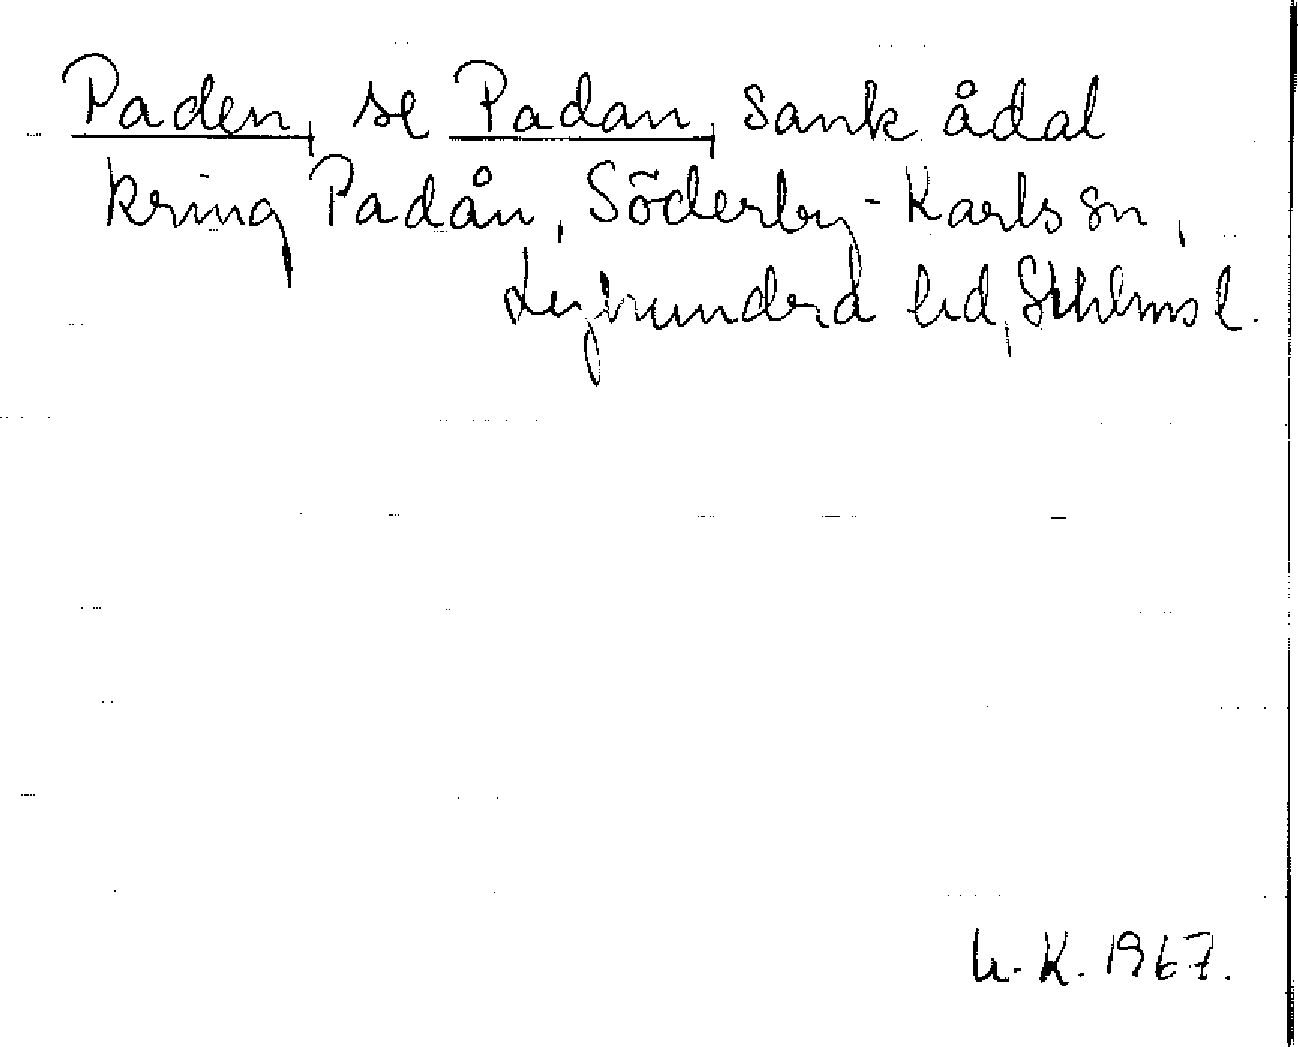 Paden, se Padan, sank ådal
kring Padån, Söderby-Karls sn,
Lyhundra hd, Sthlms l.
U. K. 1967.